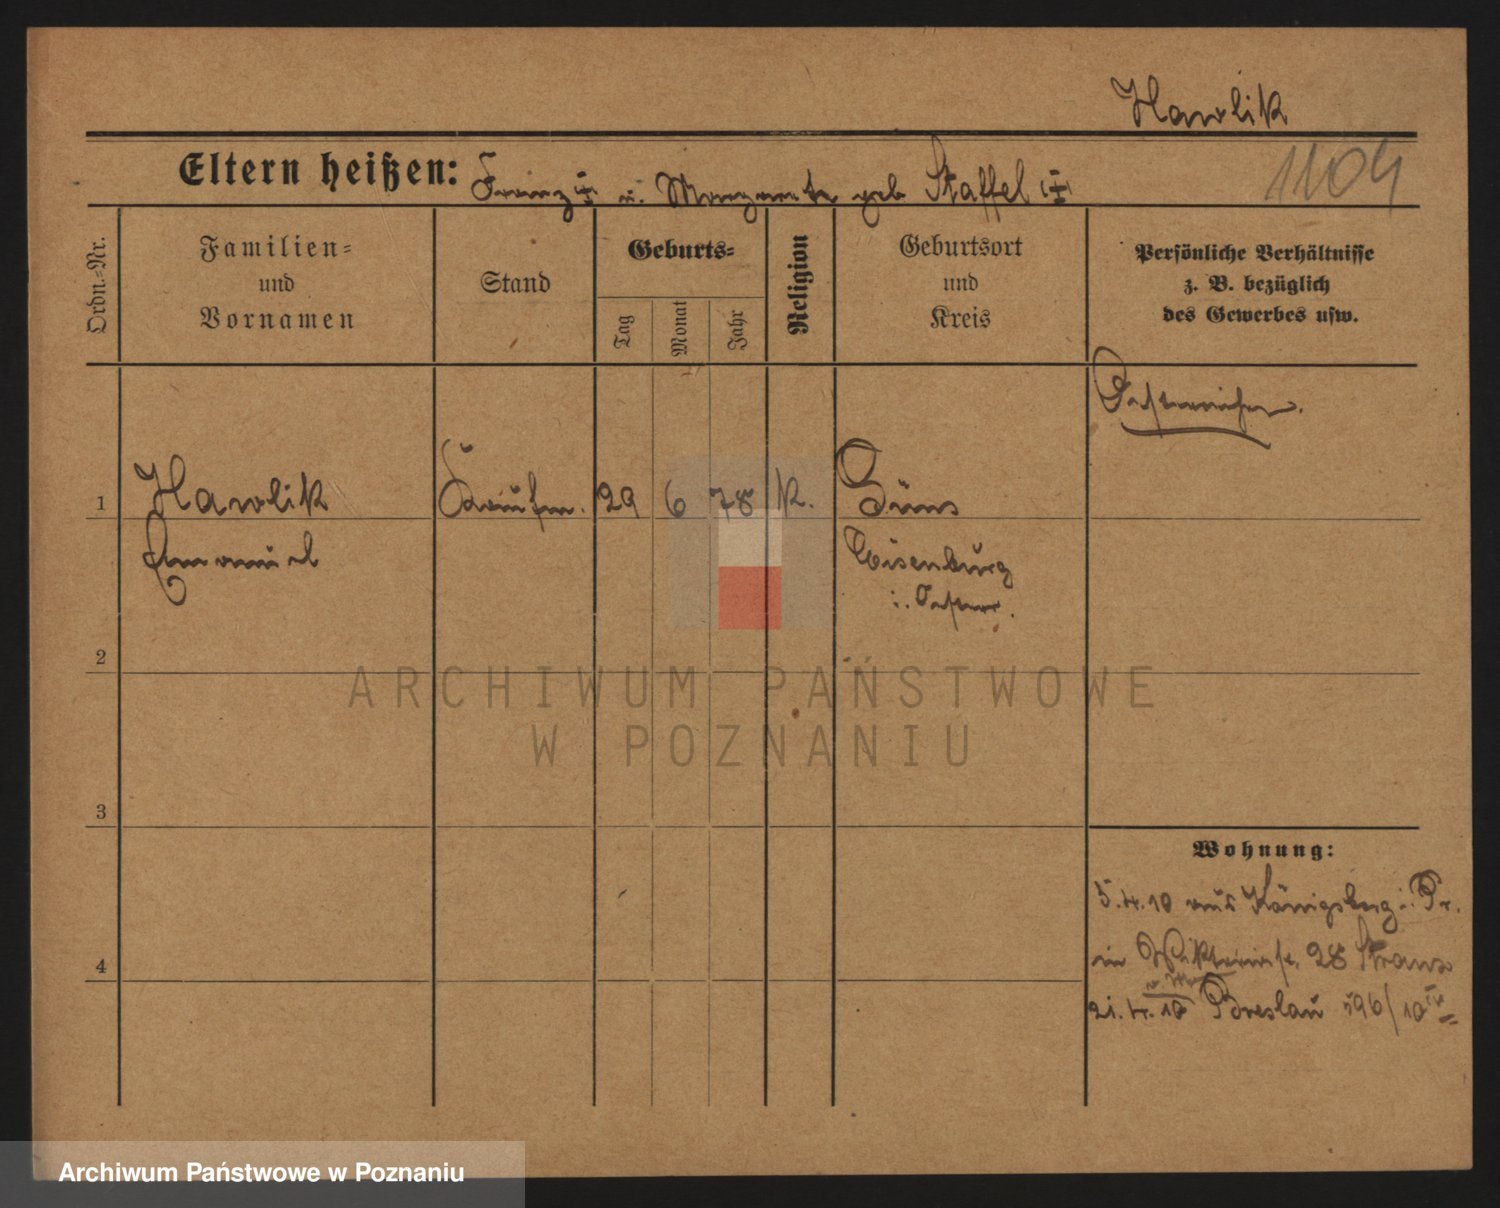 Hawlik
1104
Eltern heißen: Franz u. Margarete geb Staffel
Ordn.-Nr.
Familien-
und
Vornamen
Stand
Geburts-
Tag
Monat
Jahr
Religion
Geburtsort
und
Kreis
Persönliche Verhältnisse
z. B. bezüglich
des Gewerbes usw.
Oesterreicher.
1 Hawlik Kaufm. 29 6 78 K. Güns
Emanuel Eisenburg
i. Oesterr.
2
3
4
Wohnung:
5.4.10 aus Königsberg i. Pr.
in Viktoriastr. 28
21.4.10 Breslau 596/10
ARCHIWUM PAŃSTWOWE
W POZNANIU
Archiwum Państwowe w Poznaniu